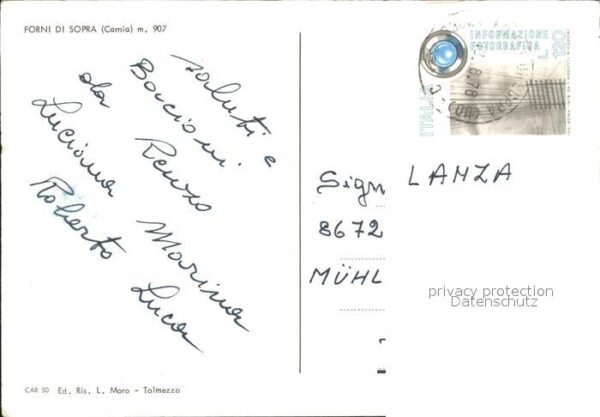 FORNI DI SOPRA (Carnia) m. 907
saluti e
Baccioni
da Renzo
Luciana Marina
Roberto Luca
INFORMAZIONE
FOTOGRAFICA
L. 120
ITALIA
8.78
Sign LANZA
8672
MÜHL
privacy protection
Datenschutz
CAR 50 Ed. Ris. L. Moro - Tolmezzo